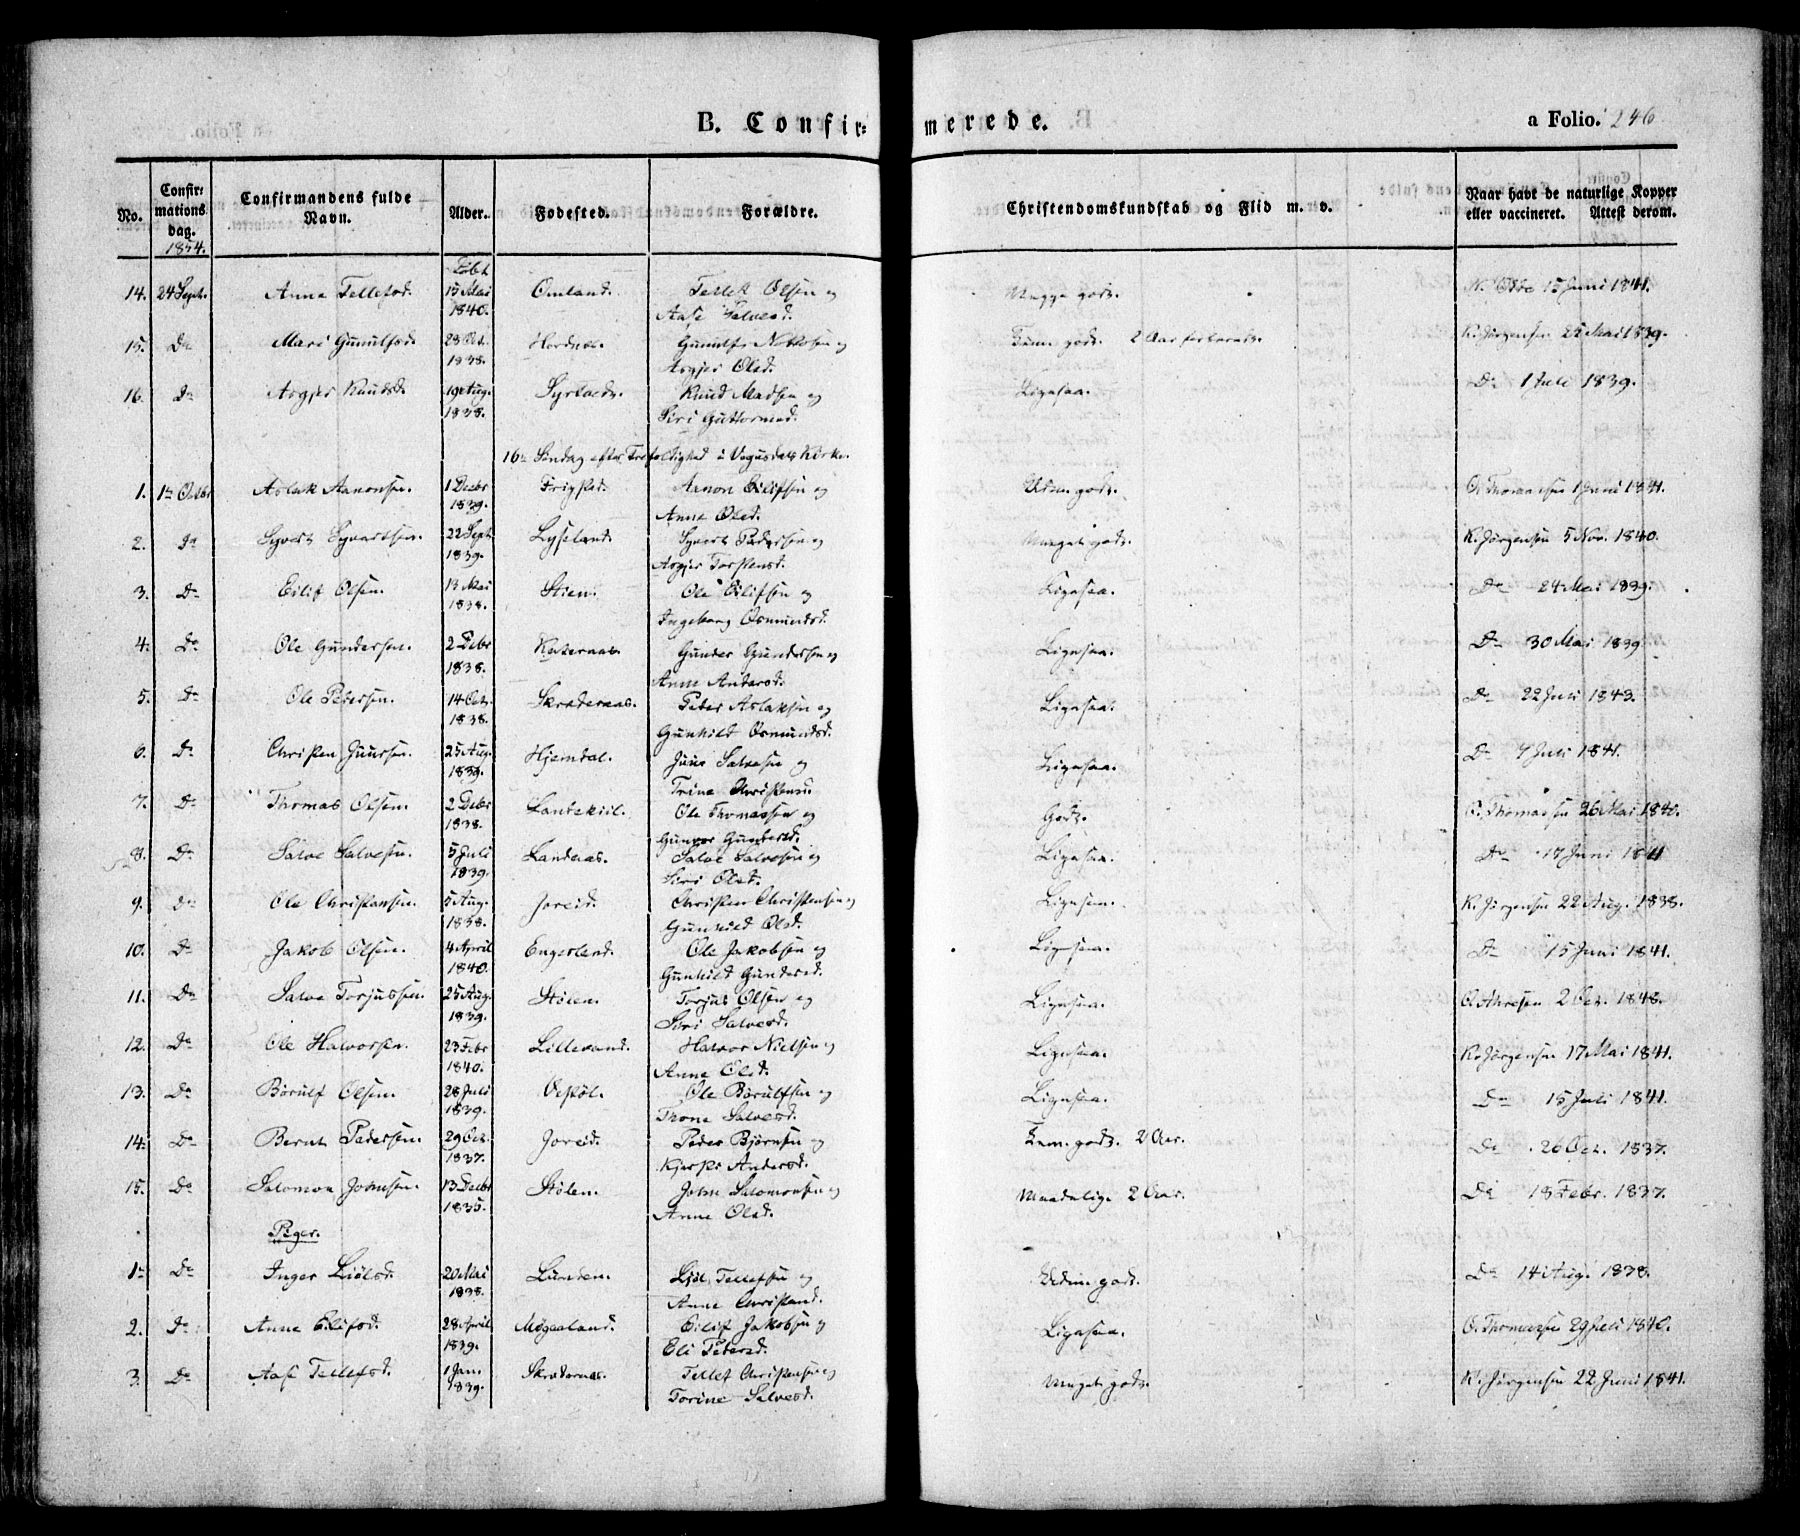 B. Confir= merede.
a Folio. 246
No. Confir= mations dag. 1854. Confirmandens fulde Navn. Alder. Fødested. Forældre. Christendomskundskab og Flid m. v. Naar havt de naturlige Kopper eller vaccineret. Attest derom.
14. 24 Sept. Anna Tellefsd. 15 Mai Omland. Tellef Olsen og Megge godt. 15 Juni 1841.
1840. Aase Salvesd.
15. Do Mari Gunulfsd. 23 Oct. Hordnes. og Tem. godt. 2 Aar K. Jørgensen 25 Mai 1839.
1838. Asgjer Olsd.
16. Do Asgjer Knudsd. 19 Aug. Knud Madsen og Ligesaa. Do 1 Juli 1839.
1838. Siri Guttormsd.
16de Søndag efter Trefoldighed i Vegusdals Kirke.
1. 1te Octbr Aslak Aanonsen. 1 Decbr Frigsted. Aanon Eilifsen og Udm. godt. O. Thomassen 1 Juni 1841.
1839. Anne Olsd.
2. Do Syvert Syvertsen. 22 Sept. Lyseland. Syvert Pedersen og Meget godt. K. Jørgensen 5 Nov. 1840.
1839. Asgjer Torstensd.
3. Do Eilif Olsen. 13 Mai Stien. Ole Eilifsen og Ligesaa. Do 24 Mai 1839.
1838. Ingeborg Osmundsd.
4. Do Ole Gundersen. 2 Debr Katernaas. Gunder Gundersen og Ligesaa. Do 30 Mai 1839.
1838. Anne Andersd.
5. Do Ole Pedersen. 14 Oct. Skrederaas. Peder Aslaksen og Ligesaa. Do 22 Juli 1843.
1838. Gunhild Osmundsd.
6. Do Christen Juursen. 25 Aug. Hjemdal. Juur Salvesen og Ligesaa. Do 7 Juli 1841.
1839. Trine Christensd.
7. Do Thomas Olsen. 2 Debr Landekiil. Ole Thomassen og Godt. O. Thomassen 26 Mai 1840.
1838. Gunvor Gundersd.
8. Do Salve Salvesen. 5 Juli Landaas. Salve Salvesen og Ligesaa. Do 17 Juni 1841
1839. Siri Olsd.
9. Do Ole Christensen. 5 Aug. Joreid. Christen Christensen og Ligesaa. K. Jørgensen 22 Aug. 1838.
1838. Gunhild Olsd.
10. Do Jakob Olsen. 4 April Engesland. Ole Jakobsen og Ligesaa. Do 15 Juni 1841.
1840. Gunhild Gundersd.
11. Do Salve Torjussen. 25 Aug. Stølen. Torjus Olsen og Ligesaa. 2 Oct. 1848.
1839. Siri Salvesd.
12. Do Ole Halvorsen. 23 Febr Lillevand. Halvor Nielsen og Ligesaa. K. Jørgensen 17 Mai 1841.
1840. Anne Olsd.
13. Do Børulf Olsen. 28 Juli Vestøl. Ole Børulfsen og Ligesaa. Do 15 Juli 1841.
1839. Thone Salvesd.
14. Do Bernt Pedersen. 29 Oct. Joreid. Peder Bjørnsen og Tem. godt. 2 Aar. Do 26 Oct. 1837.
1837. Kjersti Andersd.
15. Do Salomon Johnsen. 13 Decbr Stølen. John Salomonsen og Maadelig. 2 Aar. Do 18 Febr. 1837.
1835. Anne Olsd.
Piger.
1te Do Inger Liølsd. 20 Mai Lunden. Liøl Tellefsen og Udm. godt. Do 14 Aug. 1838.
1838. Anne Christensd.
2. Do Anne Eilifsd. 28 April Møgaaland. Eilif Jakobsen og Ligesaa. O. Thomassen 29 Juli 1840.
1839. Eli Pedersd.
3. Do Aase Tellefsd. 1 Jan. Skrederaas. Tellef Christensen og Meget godt. K. Jørgensen 22 Juni 1841.
1839. Torine Salvesd.